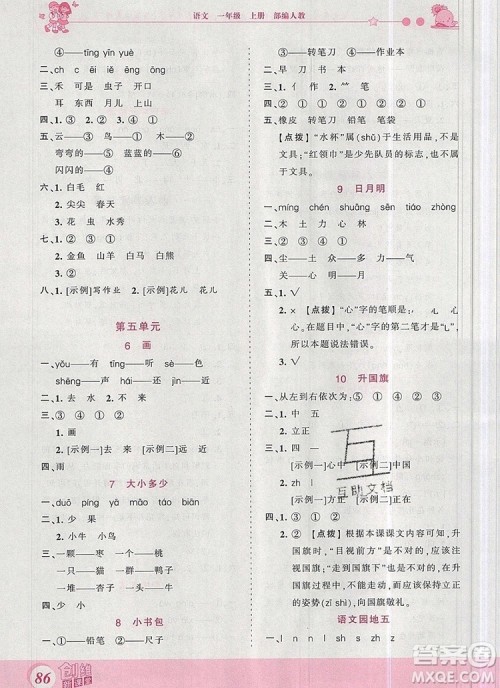 语文 一年级 上册 部编人教
④——tīng yīn yuè
二、ch c ěi ē chóng chū
三、禾 可 虫 是
耳 东西 月儿 山上
四、① ② ③
五、云——③ 鸟——① 木——②
弯弯的——⑤ 蓝蓝的——⑥
闪闪的——④
六、1. 白毛 红
2. 尖尖 春天
3. 花 虫 水 草
七、1. ② ③ ①
2. ① 金鱼 山羊 白马 熊猫
② ③ ①
八、1. [示例]写作业 2. [示例]花儿 花儿
第五单元
6 画
一、yǒu——有 tīng——听 sè——色
shēng——声 jìn——近 hái——还
二、1. 去 水 2. 不 来
三、③ ① ② ④
1. 画
2. 近 无 去 来
3. [示例一]远近 [示例二]远处
四、雨
7 大小多少
一、duō píng yā māo táo biān
二、1. 少 果
2. 小牛 小鸟
三、一颗——枣 一个——苹果
一只——猫 一群——鸭子
一堆——杏子 一头——牛
8 小书包
一、①——铅笔 ②——尺子
③——转笔刀 ④——作业本
二、早 刀 书 本
三、1. 亻 作 2. 𥫗 笔
四、① ② ③
五、橡皮 转笔刀 铅笔 笔袋
【点拨】“水杯”属(shǔ)于生活用品，不是
文具；“红领巾”是少先队员的标志，也不属
于文具。
9 日月明
一、míng chén shuāng sēn tiáo zhòng
二、木 土 力 心
三、③ ② ④ ①
四、尘——小土 男——田力 尖——小大
关——门 众——人人人
五、1. √
2. × 【点拨】“心”字的笔顺是：
所以，在本题目中，“心”字的第二笔才是
，本题说法错误。
3. √
10 升国旗
一、从左到右依次为：⑤ ① ④ ② ③
二、1. 中 五
2. 立正
三、1. 四 一
[示例一]心中 [示例二]中国
2. zh l
[示例一]方正 [示例二]正在
四、② ③ ①
【点拨】根据本课课文内容可知，升
国旗时，“目视前方”是不对的，应该注
视国旗；“走到国旗下”也是不对的，应该
在国歌声中立正，望着国旗，用正确
的姿势(zī shì)向国旗敬礼。
语文园地五
一、l n n l l shz shz z
互
互助文档
86
创维新课堂
答案圈
MXQE.COM